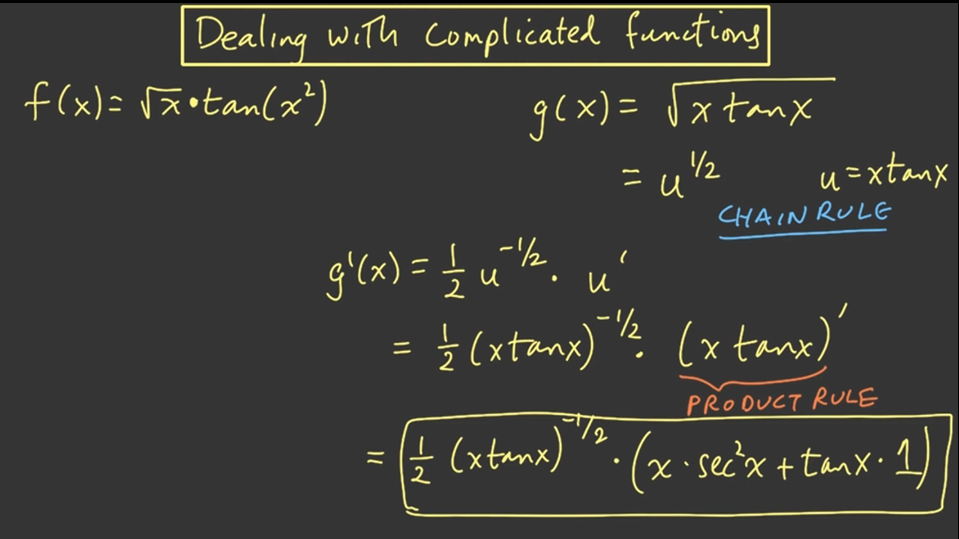 Dealing with complicated functions
f(x) = √x • tan(x²)
g(x) = √(x tanx)
= u^(1/2) u = xtanx
CHAIN RULE
g'(x) = 1/2 u^(-1/2) · u'
= 1/2 (xtanx)^(-1/2) · (x tanx)'
PRODUCT RULE
= 1/2 (xtanx)^(-1/2) · (x · sec²x + tanx · 1)